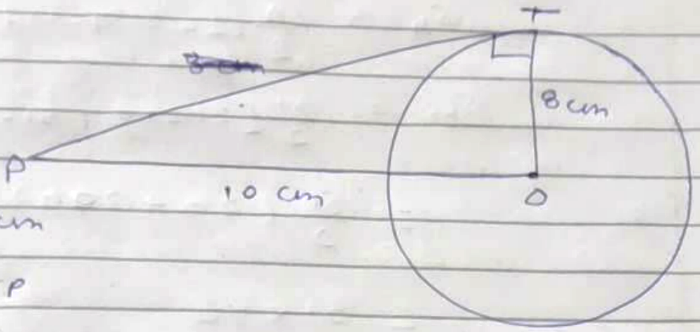 T
8 cm
P
10 cm
O
cm
P